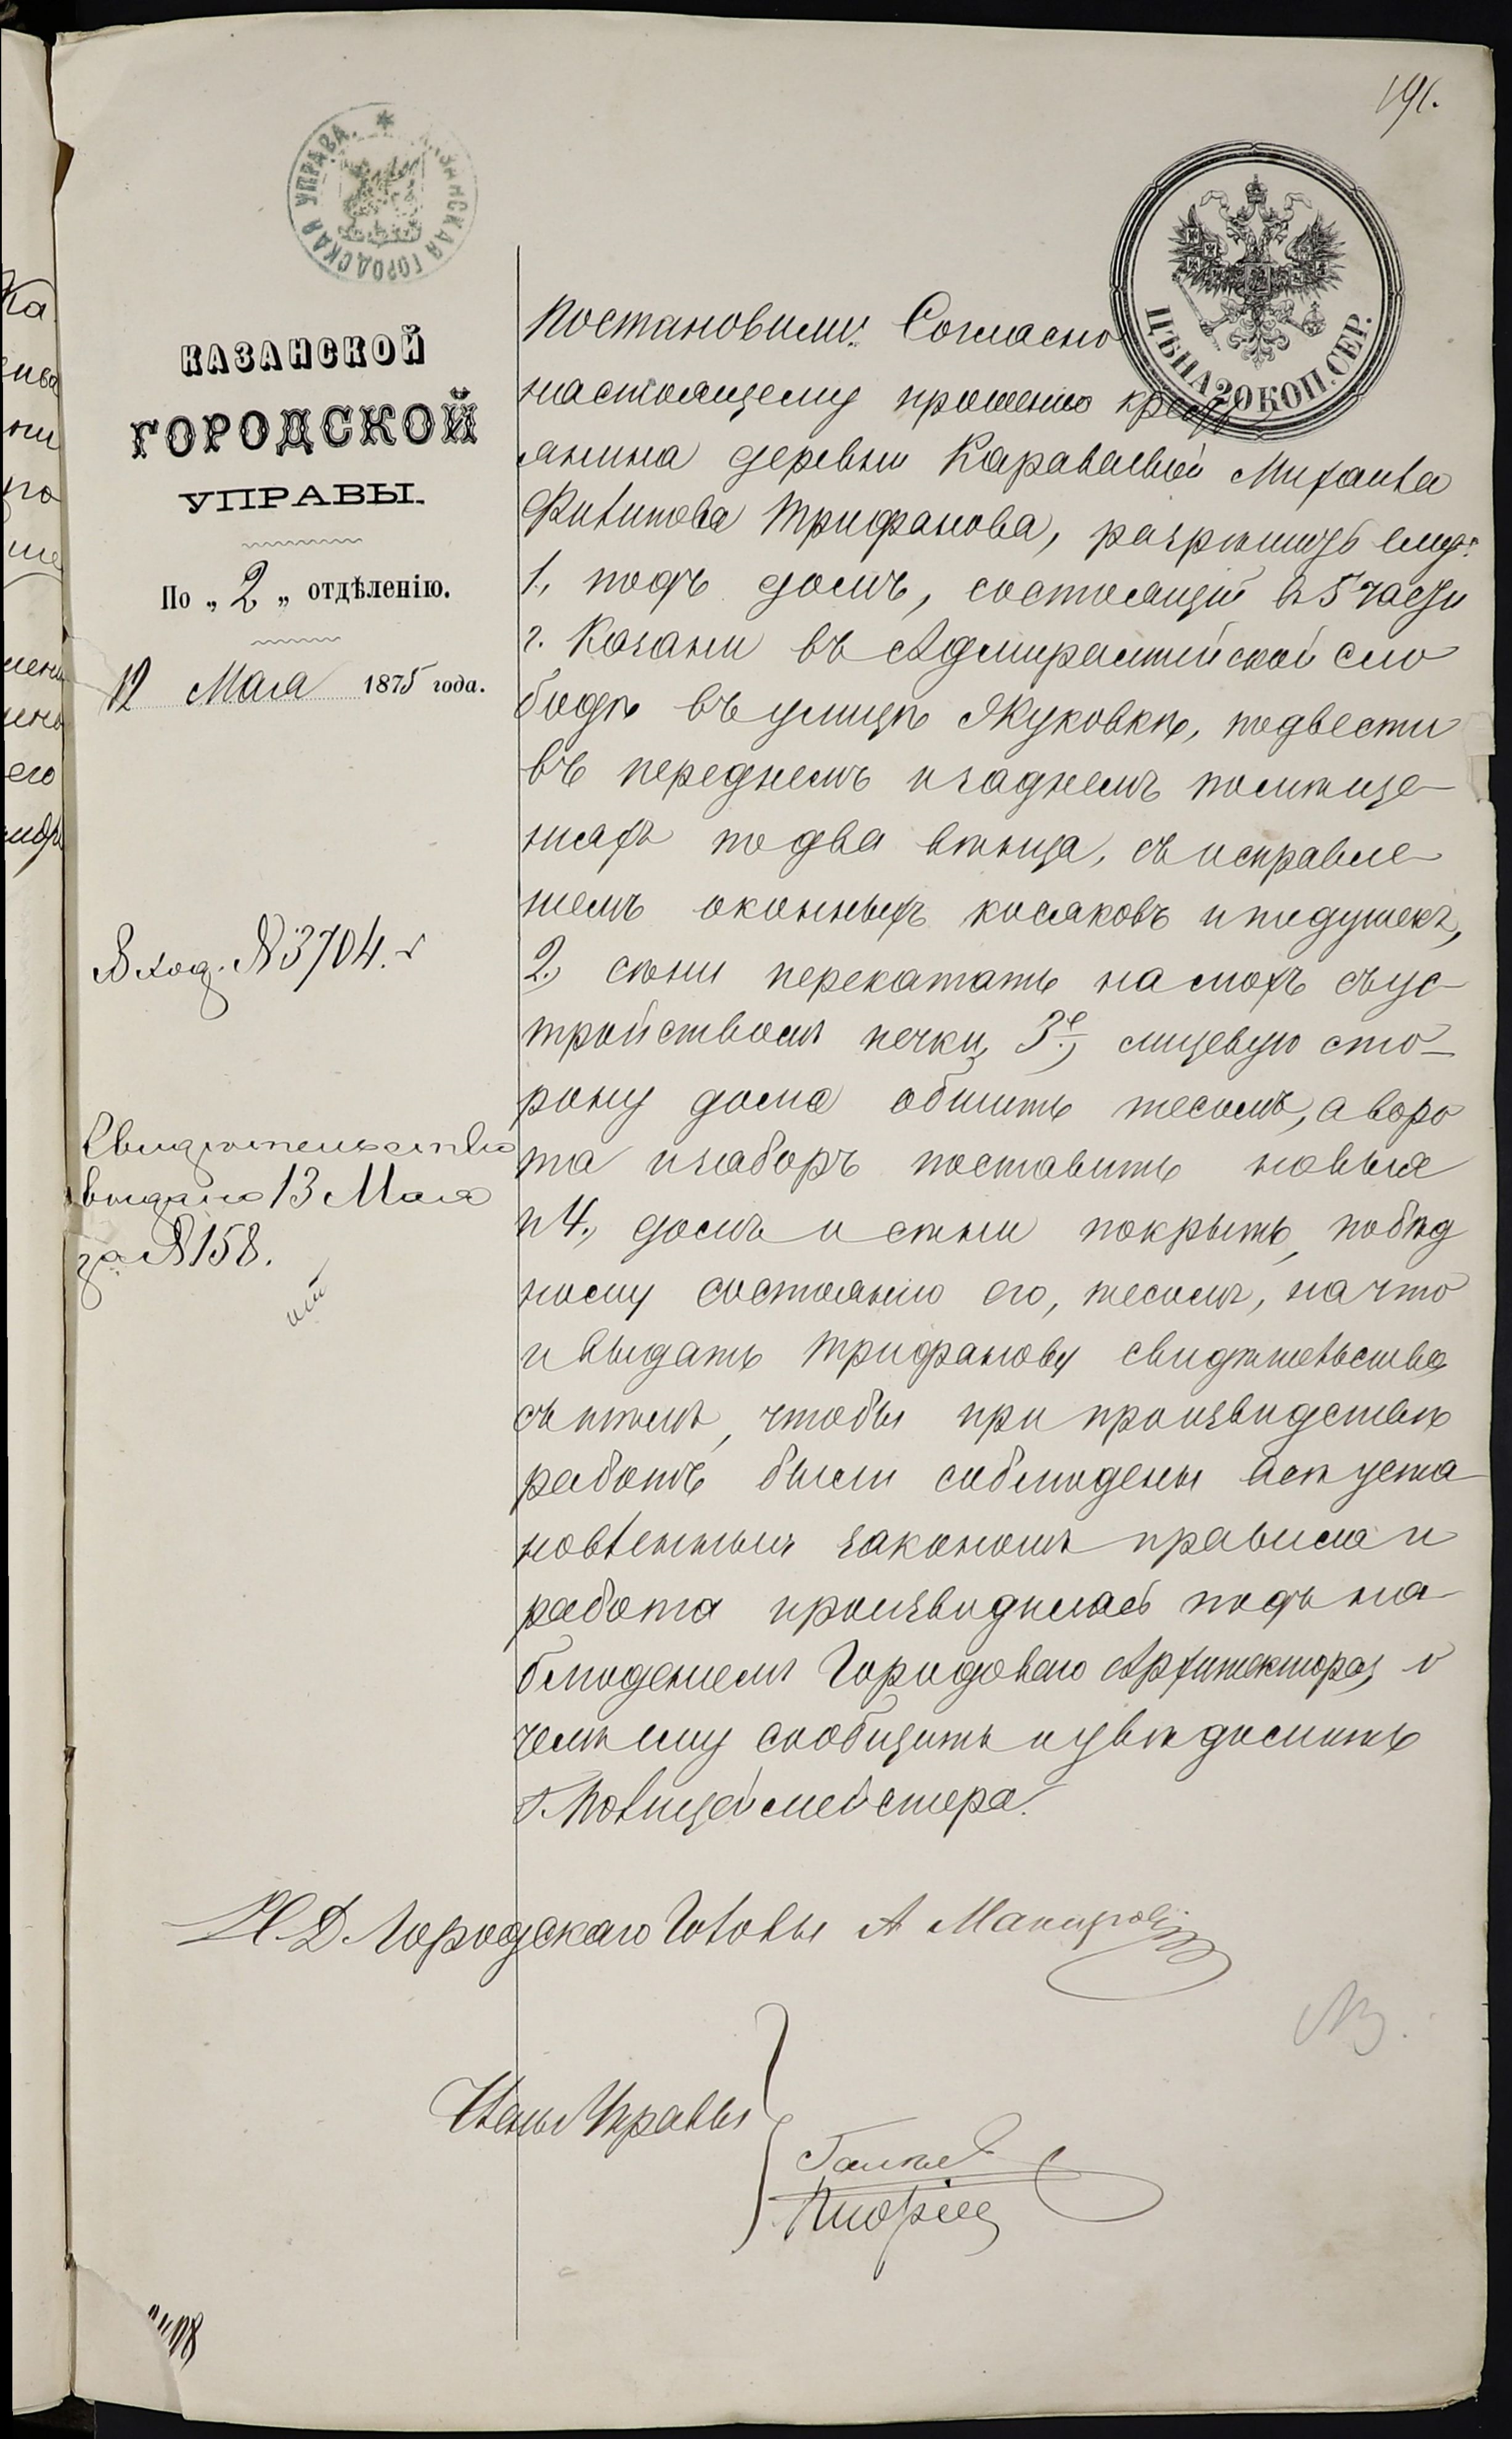 191.
КАЗАНСКАЯ ГОРОДСКАЯ УПРАВА.
ЦѢНА 20 КОП. СЕР.
КАЗАНСКОЙ
ГОРОДСКОЙ
УПРАВЫ.
По „2„ отдѣленію.
12 Мая 1875 года.
Вход. № 3704.
Свидѣтельство
выдано 13 Мая
за № 158.
Постановили: Согласно
настоящему прошенію крест
янина деревни Караваевой Михаила
Филипова Трифанова, разрѣшить ему:
1., подъ домъ, состоящій в 5 части
г. Казани въ Адмиралтейской сло
бодѣ въ улицѣ Якуковкѣ, подвести
въ переднемъ и заднемъ помѣще-
ніяхъ по два вѣнца, съ исправле-
ніемъ оконныхъ косяковъ и подушекъ,
2., сѣни перекатать на мохъ съ ус-
тройствомъ печки, 3е., лицевую сто-
рону дома обшить тесомъ, а воро
та и заборъ поставить новыя
и 4., домъ и сѣни покрыть, по бѣд
ному состоянію его, тесомъ, на что
и выдать Трифанову свидѣтельство
съ тѣмъ, чтобы при производствѣ
работъ были соблюдены всѣ уста-
новленныя закономъ правила и
работа производилась подъ на-
блюденіемъ Городоваго Архитектора, о
чемъ ему сообщить и увѣдомить
г. Полицеймейстера.
И. Д. Городскаго Головы А
Члены Управы